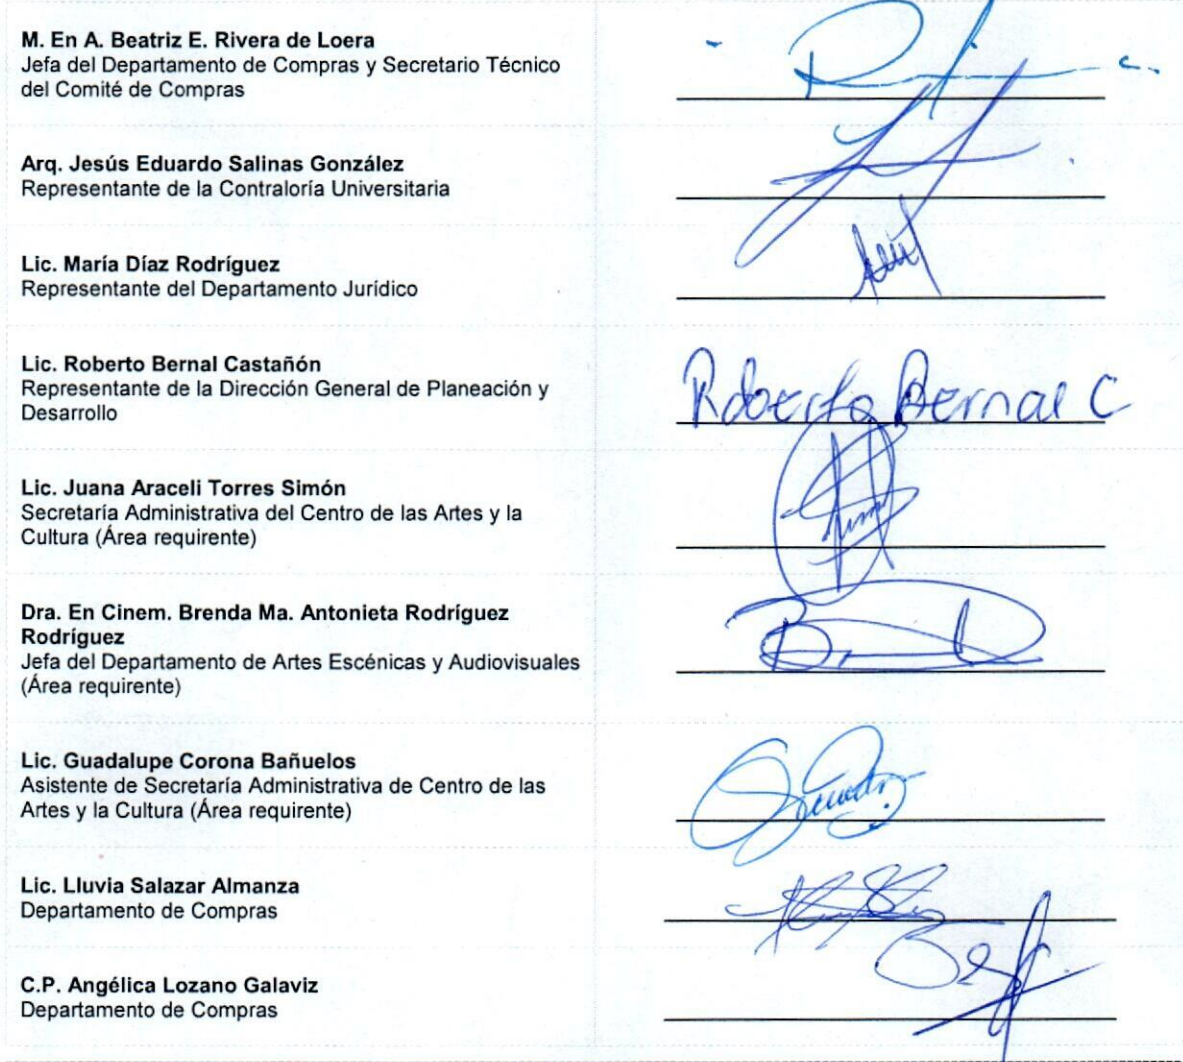 M. En A. Beatriz E. Rivera de Loera
Jefa del Departamento de Compras y Secretario Técnico
del Comité de Compras
Arq. Jesús Eduardo Salinas González
Representante de la Contraloría Universitaria
Lic. María Díaz Rodríguez
Representante del Departamento Jurídico
Lic. Roberto Bernal Castañón
Representante de la Dirección General de Planeación y
Desarrollo
Roberto Bernal C
Lic. Juana Araceli Torres Simón
Secretaría Administrativa del Centro de las Artes y la
Cultura (Área requirente)
Dra. En Cinem. Brenda Ma. Antonieta Rodríguez
Rodríguez
Jefa del Departamento de Artes Escénicas y Audiovisuales
(Área requirente)
Lic. Guadalupe Corona Bañuelos
Asistente de Secretaría Administrativa de Centro de las
Artes y la Cultura (Área requirente)
Lic. Lluvia Salazar Almanza
Departamento de Compras
C.P. Angélica Lozano Galaviz
Departamento de Compras